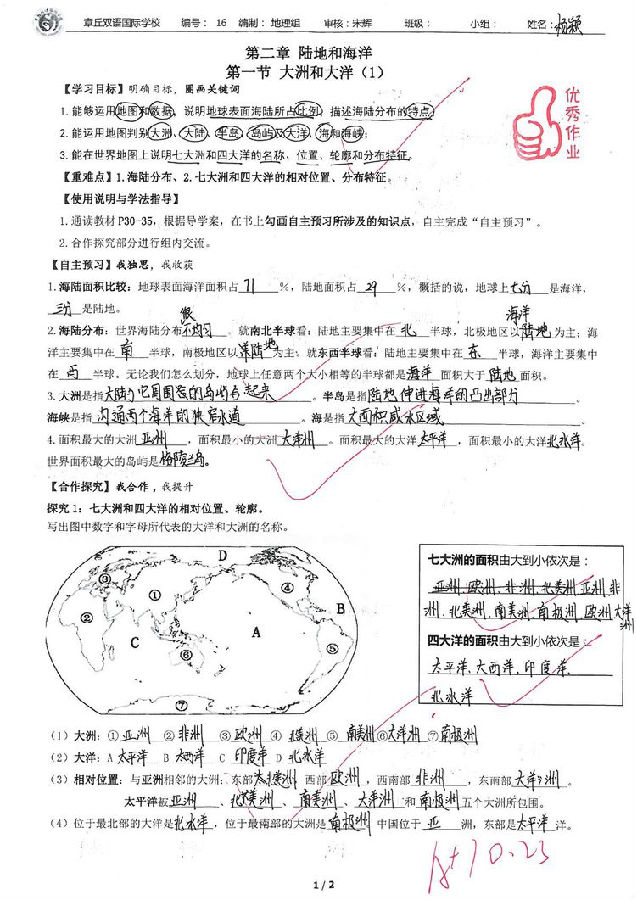 章丘双语国际学校 编号： 16 编制： 地理组 审核：朱辉 班级： 小组： 姓名：杨颖
第二章 陆地和海洋
第一节 大洲和大洋（1）
优秀作业
【学习目标】明确目标，圈画关键词
1.能够运用地图和数据，说明地球表面海陆所占比例，描述海陆分布的特点；
2.能运用地图判别大洲、大陆、半岛、岛屿及大洋、海和海峡；
3.能在世界地图上说明七大洲和四大洋的名称、位置、轮廓和分布特征。
【重难点】1.海陆分布、2.七大洲和四大洋的相对位置、分布特征。
【使用说明与学法指导】
1.通读教材P30-35，根据导学案，在书上勾画自主预习所涉及的知识点，自主完成“自主预习”。
2.合作探究部分进行组内交流。
【自主预习】我独思，我收获
1.海陆面积比较：地球表面海洋面积占 71 %，陆地面积占 29 %，概括的说，地球上七分是海洋，
三分是陆地。
2.海陆分布：世界海陆分布很不均匀。就南北半球看：陆地主要集中在 北 半球，北极地区以海洋为主；海
洋主要集中在 南 半球，南极地区以陆地为主；就东西半球看：陆地主要集中在 东 半球，海洋主要集中
在 西 半球。无论我们怎么划分，地球上任意两个大小相等的半球都是海洋面积大于陆地面积。
3.大洲是指大陆和它周围的岛屿合起来。半岛是指陆地伸进海洋的凸出部分
海峡是指沟通两个海洋的狭窄水道。海是指大面积咸水区域
4.面积最大的大洲亚洲，面积最小的大洲大洋洲。面积最大的大洋太平洋，面积最小的大洋北冰洋，
世界面积最大的岛屿是格陵兰岛。
【合作探究】我合作，我提升
探究1：七大洲和四大洋的相对位置、轮廓。
写出图中数字和字母所代表的大洋和大洲的名称。
D
③ ① ④
② B
C A ⑤
⑥
⑦
七大洲的面积由大到小依次是：
亚洲、欧洲、非洲、北美洲 亚洲 非
洲、北美洲、南美洲、南极洲、欧洲 大洋洲
四大洋的面积由大到小依次是：
太平洋、大西洋、印度洋、
北冰洋
（1）大洲：①亚洲 ②非洲 ③欧洲 ④北美洲 ⑤南美洲 ⑥大洋洲 ⑦南极洲
（2）大洋：A太平洋 B大西洋 C印度洋 D北冰洋
（3）相对位置：与亚洲相邻的大洲：东部北美洲，西部欧洲，西南部非洲，东南部大洋洲。
太平洋被亚洲、北美洲、南美洲、大洋洲和南极洲五个大洲所包围。
（4）位于最北部的大洋是北冰洋，位于最南部的大洲是南极洲 中国位于 亚 洲，东部是太平洋洋。
A+ 10.23
1 / 2